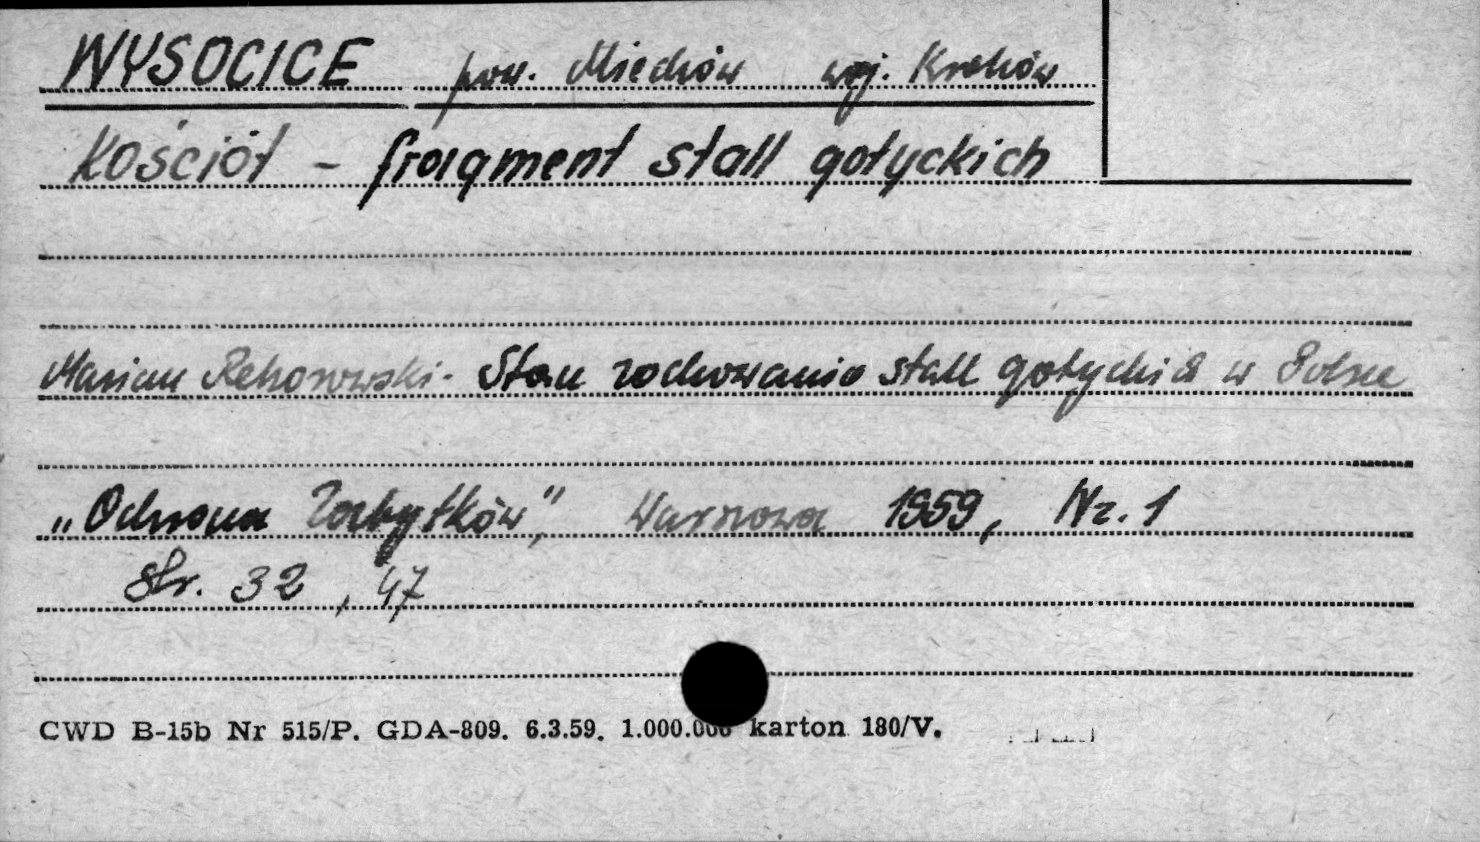 WYSOCICE pow. Miechów woj. Kraków
Kościół - fragment stall gotyckich
Marian Rehorowski - Stan zachowania stall gotyckich w Polsce
„Ochrona Zabytków", Warszawa 1959, Nr. 1
Str. 32, 47
CWD B-15b Nr 515/P. GDA-809. 6.3.59. 1.000.000 karton 180/V.